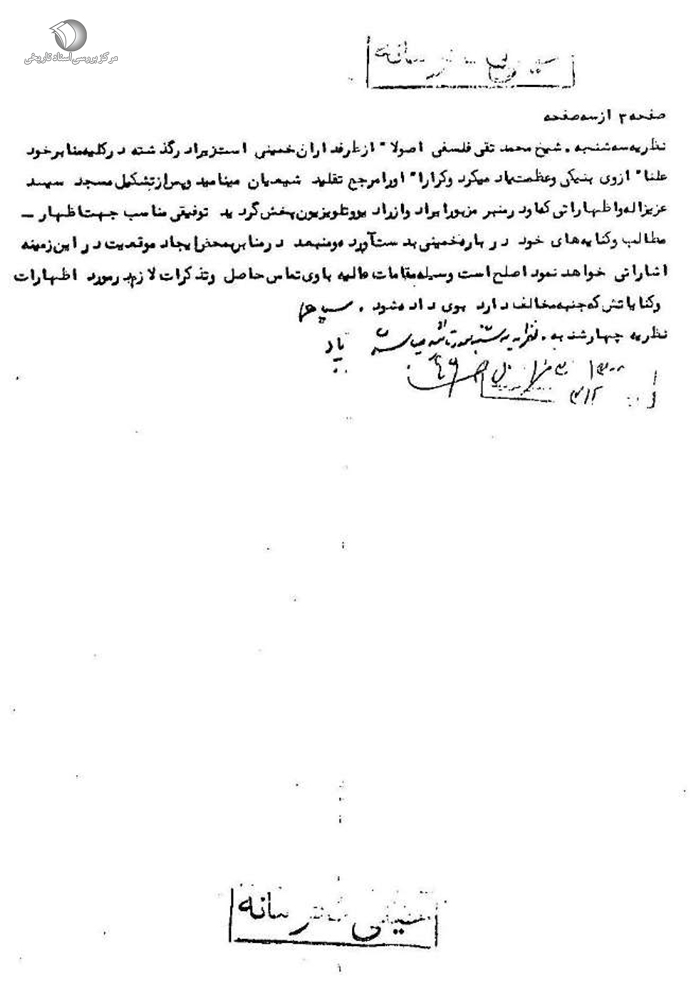 مرکز بررسی اسناد تاریخی
خیلی محرمانه
صفحه ۳ از سه صفحه
نظریه سه شنبه . شیخ محمد تقی فلسفی اصولا" از طرفداران خمینی است زیرا در گذشته در کلیه منابر خود
علنا" از وی بنیکی و عظمت یاد میکرد و کرارا" او را مرجع تقلید شیعیان مینامید و پس از تشکیل مسجد سید
عزیزاله و اظهاراتی که او در منبر مزبور ایراد و از رادیو و تلویزیون پخش گردید توفیقی مناسب جهت اظهار –
مطالب و کنایه های خود در باره خمینی بدست آورده و منبعد در منابر بمحض ایجاد موقعیت در این زمینه
اشاراتی خواهد نمود اصلح است وسیله مقامات عالیه با وی تماس حاصل و تذکرات لازم در مورد اظهارات
و کنایاتش که جنبه مخالف دارد بوی داده شود .
نظریه چهارشنبه . نظریه سه شنبه مورد تائید میباشد
۳۱۲
خیلی محرمانه